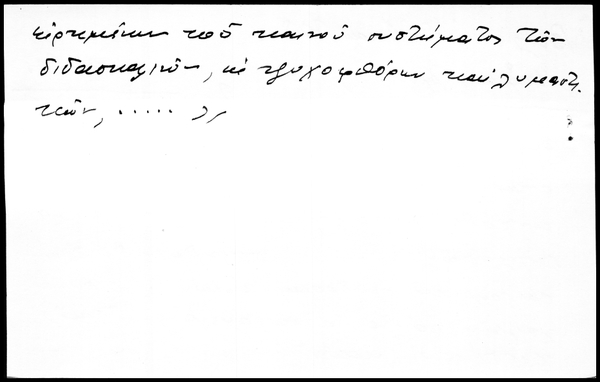 εἰρημένων τοῦ καινοῦ συστήματος τῶν
διδασκαλιῶν, ὡς ψυχοφθόρων καὶ λυμαντι-
κῶν, ..... »